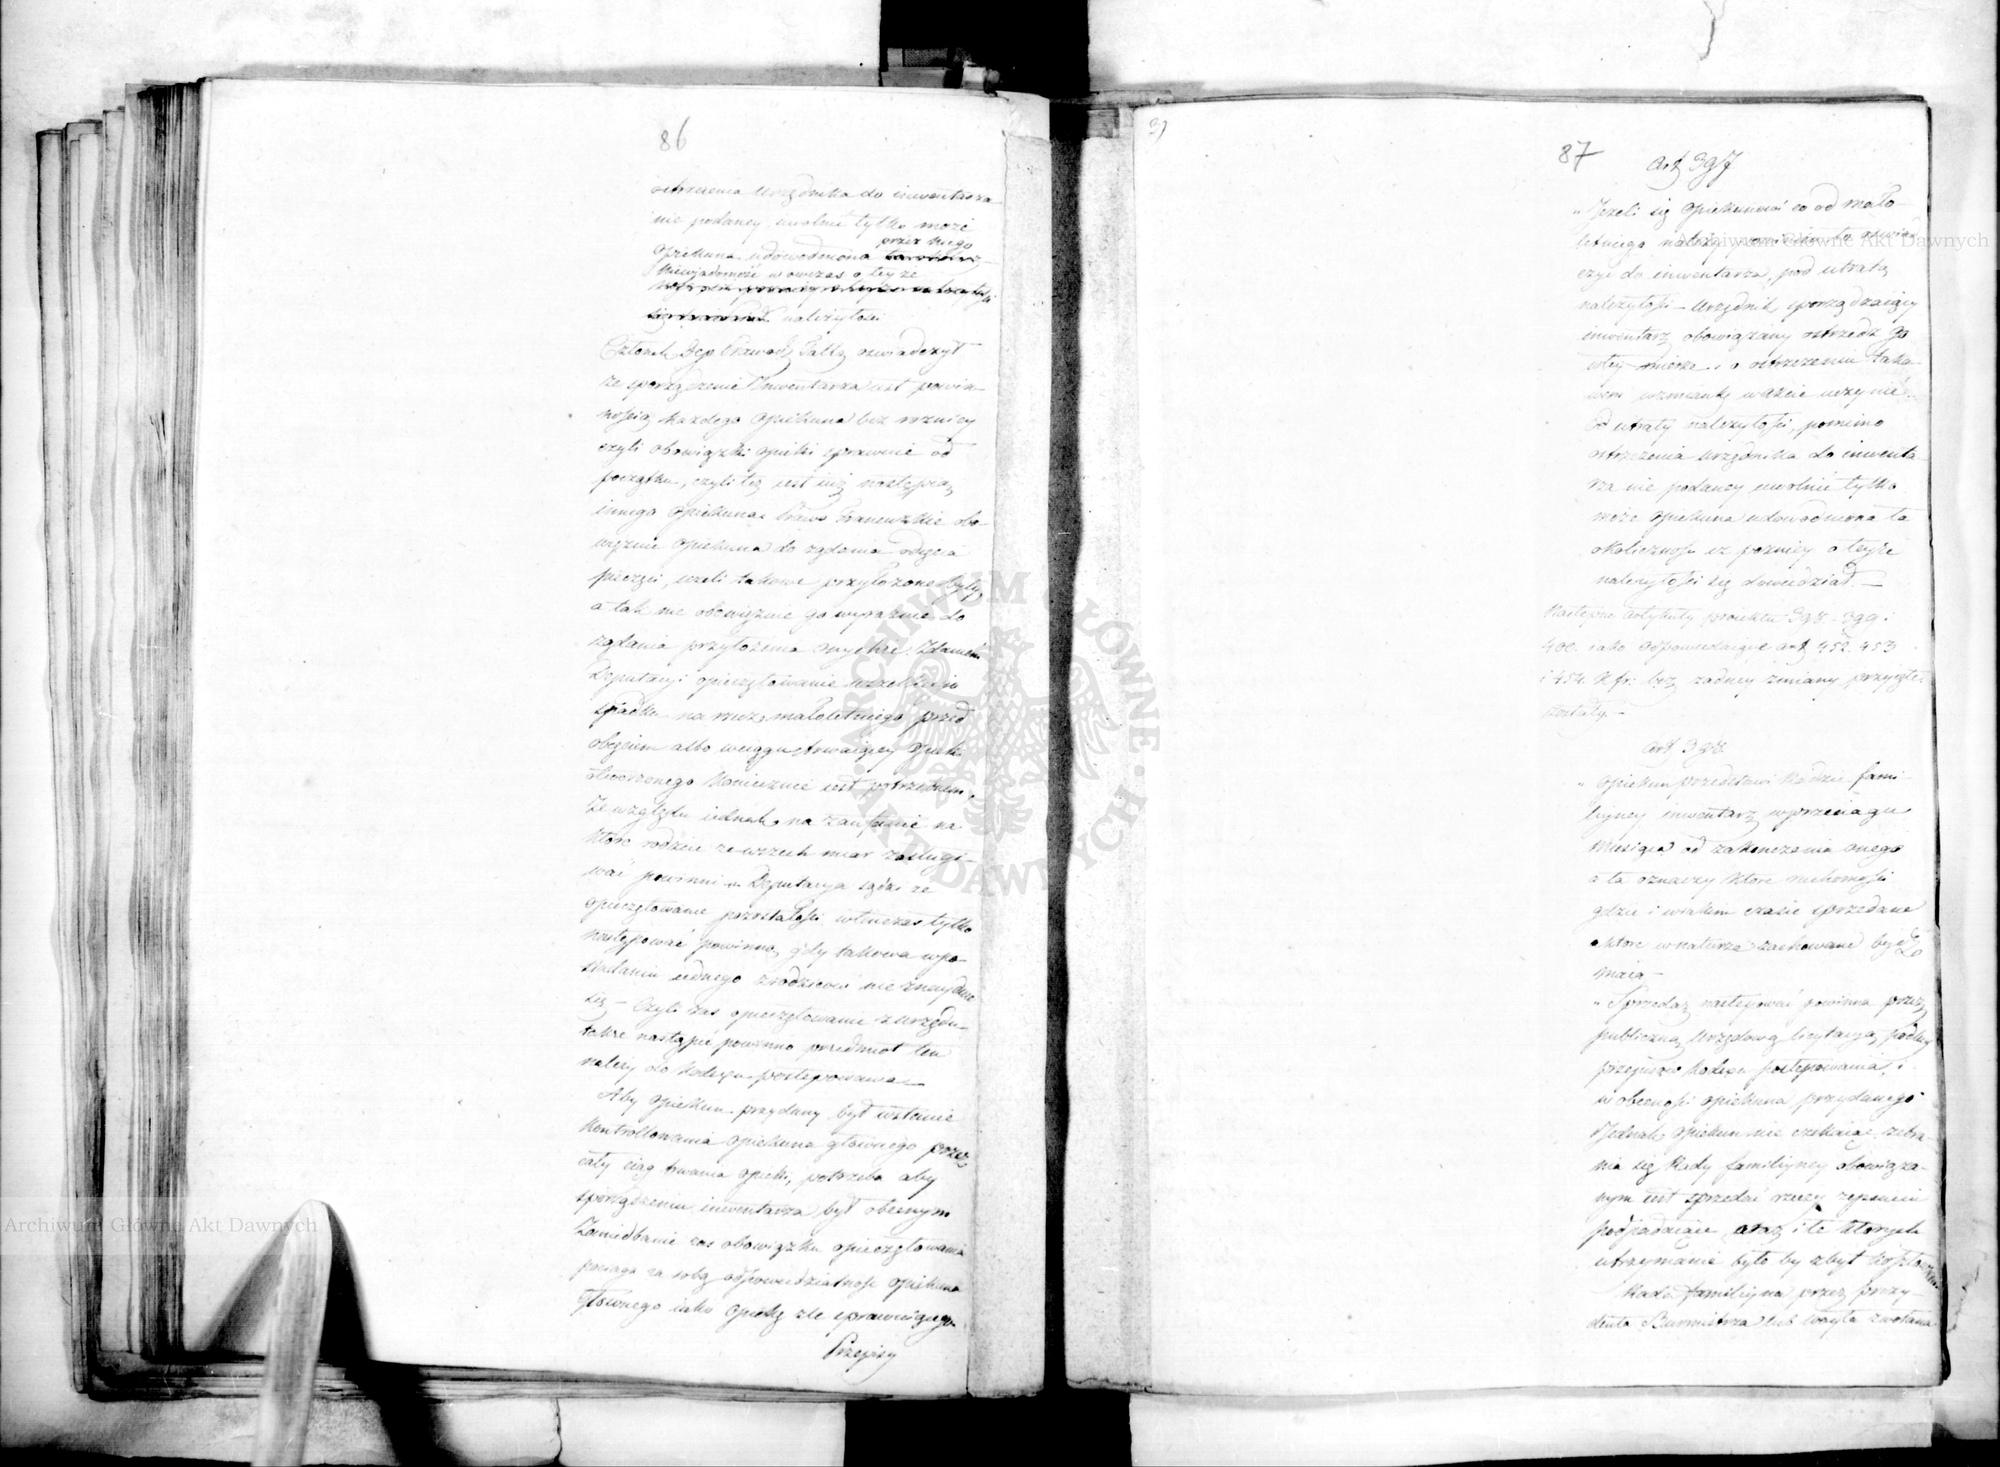 86
ostrzerzenia Urzędnika do inwentarza
nie podaney, uwolnić tylko może
przez niego
Opiekuna udowodniona
Niewiadomość wowczas o teyże
należytości
Członek Dep: oswiadczył
że sporządzenie Inwentarza iest powin-
nością każdego Opiekuna bez rożnicy
czyli obowiązki opieki sprawuie od
początku, czyli też iest iuż następcą
innego Opiekuna. Prawo Francuzkie obo-
więzuie Opiekuna do żądania odięcia
pieczęci, ieżeli takowe przyłożone były,
a tak nie obowięzuie go wyraznie do
żądania przyłożenia onychże. Zdaniem
Deputacyi opieczętowanie wszelkie
spadku na rzecz małoletniego przed
obięciem albo wciągu trwaiącey Opieki
otworzonego koniecznie iest potrzebnem,
Ze względu iednak na zaufanie na
ktore rodzice ze wszech miar zasługi-
wać powinni, Deputacya sądzi że
opieczętowanie pozostałości wtenczas tylko
następować powinno, gdy takowa w po-
siadaniu iednego z rodzicow nie znayduie
się – Czyli zas opieczętowanie z urzędu
także nastąpić powinno przedmiot ten
należy do Kodexu postępowania –
Aby Opiekun przydany był wstanie
kontrollowania Opiekuna głownego przez
cały ciąg trwania opieki, potrzeba aby
sporządzeniu inwentarza był obecnym
Zaniedbanie zas obowiązku opieczętowania
pociąga za sobą odpowiedzialność Opiekuna
Głownego iako Opiekę zle sprawuiącego.
Przepisy
87
Art 397
„Jeżeli się Opiekunowi co od mało-
letniego należy, powinien to oswiad-
czyć do inwentarza, pod utratą
należytości – Urzędnik sporządzaiący
inwentarz obowiązany ostrzedz go
w tey mierze, i o ostrzeżeniu tako-
wem wzmiankę w akcie uczynić.
Od utraty należytości, pomimo
ostrzeżenia Urzędnika do inwenta-
rza nie podaney uwolnić tylko
może Opiekuna udowodniona ta
okoliczność iż pozniey o teyże
należytości się dowiedział. –
Następne Artykuły proiektu 398. 399 i
400. iako odpowiedaiące art 452. 453
i 454. K. fr: bez żadney zmiany przyięte
zostały. –
Art 398.
„Opiekun przedstawi Radzie fami-
liyney inwentarz w przeciągu
Miesiąca od zakończenia onego
a ta oznaczy ktore ruchomości
gdzie i w iakim czasie sprzedane
a ktore w naturze zachowane bydź
maią –
„Sprzedaż następować powinna przez
publiczną urzędową licytacyą, podług
przepisow Kodexu postępowania, i
w obecności Opiekuna przydanego.
Jednak Opiekun nie czekaiąc zebra-
nia się Rady familiyney obowiąza-
nym iest sprzedać rzeczy zepsuciu
podpadaiące oraz i te ktorych
utrzymanie było by zbyt kosztowne
Rada familiyna przez prezy-
denta Burmistrza lub Woyta zwołana
Archiwum Główne Akt Dawnych
Archiwum Główne Akt Dawnych
ARCHIWUM GŁÓWNE AKT DAWNYCH